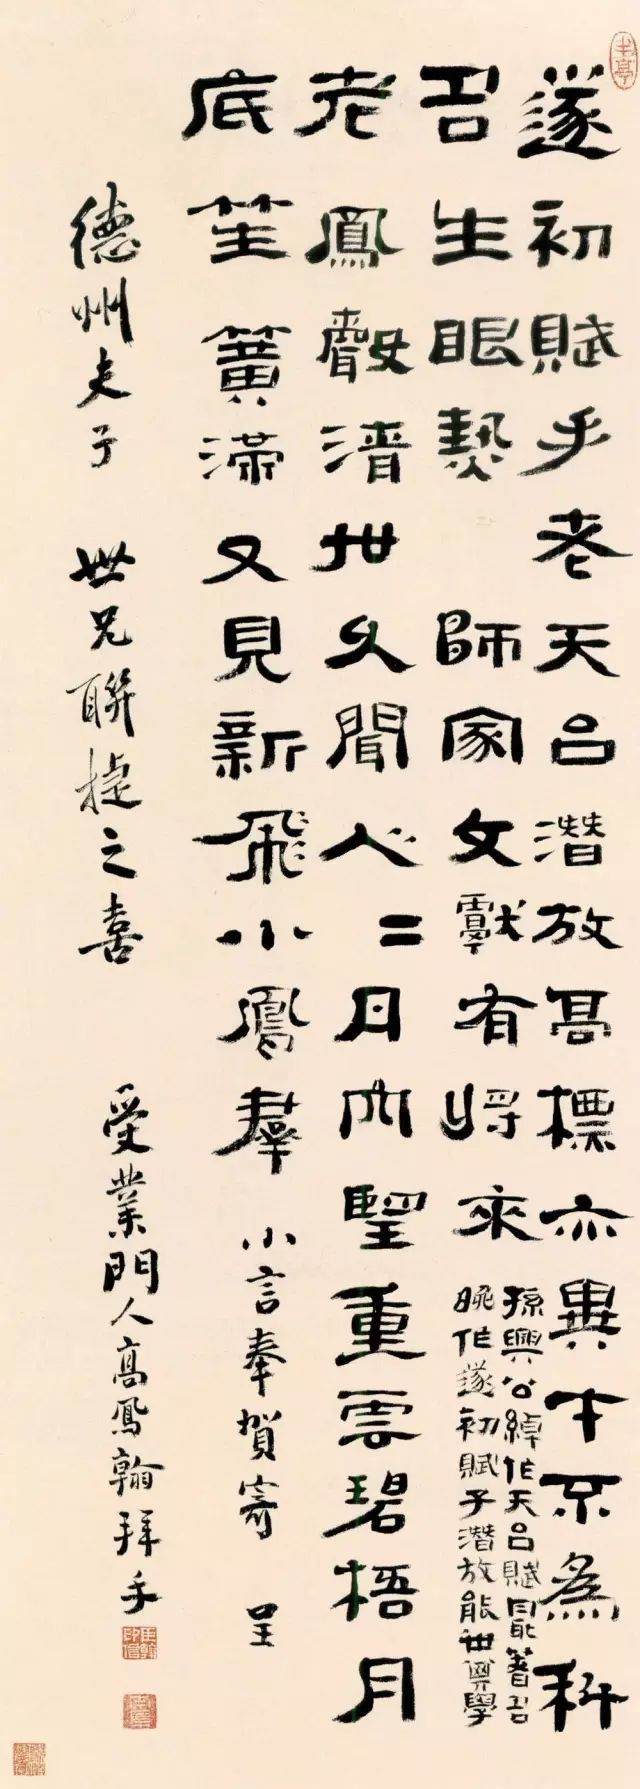 遂初賦手老天台潜放高標亦異才不為科
名生眼熱 師家文獻有将來
孫興公綽作天台賦著名
晚作遂初賦子潜放能世其學
老鳳聲清世久聞人二月內重雲碧梧月
底笙簧滿又見新飛小鳳羣 小言奉賀寄 呈
德州夫子 世兄聯捷之喜
受業門人高鳳翰拜手